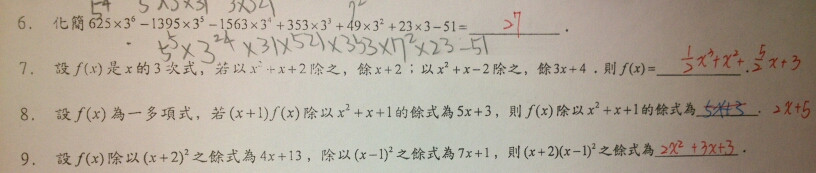 5⁴ 5×3×31 3×521 7²
6. 化簡 625×3⁶−1395×3⁵−1563×3⁴+353×3³+49×3²+23×3−51= 27 .
5⁵×3²⁴×31×521×353×17²×23−51
7. 設 f(x) 是 x 的 3 次式，若以 x²+x+2 除之，餘 x+2；以 x²+x−2 除之，餘 3x+4．則 f(x)= 1/2x³+x²+5/2x+3 .
8. 設 f(x) 為一多項式，若 (x+1)f(x) 除以 x²+x+1 的餘式為 5x+3，則 f(x) 除以 x²+x+1 的餘式為 5x+3 . 2x+5
9. 設 f(x) 除以 (x+2)² 之餘式為 4x+13，除以 (x−1)² 之餘式為 7x+1，則 (x+2)(x−1)² 之餘式為 2x²+3x+3 .